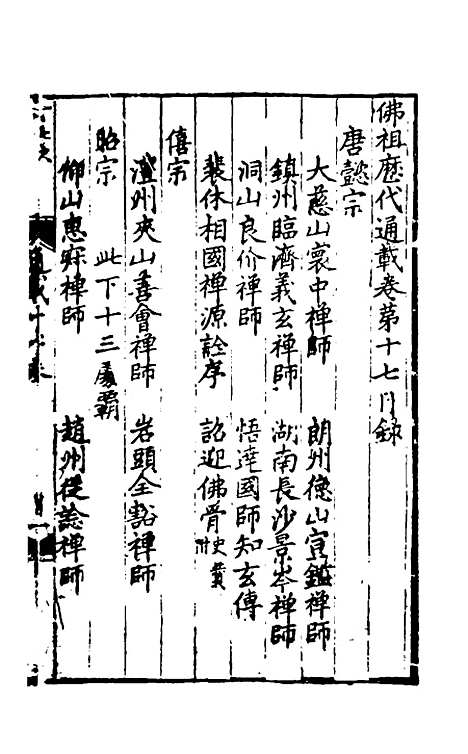 佛祖歷代通載卷第十七目錄
唐懿宗
大慈山寰中禪師 朗州德山宣鑑禪師
鎮州臨濟義玄禪師 湖南長沙景岑禪師
洞山良价禪師 悟達國師知玄傳
裴休相國禪源詮序 詔迎佛骨附史贊
僖宗
澧州夾山善會禪師 岩頭全豁禪師
昭宗 此下十三處霸
仰山惠寂禪師 趙州從諗禪師